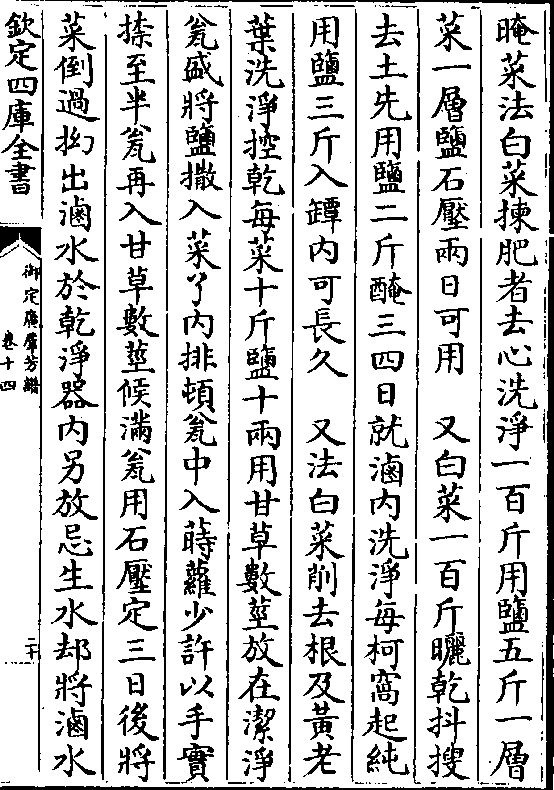 晻菜法白菜揀肥者去心洗淨一百斤用鹽五斤一層
菜一層鹽石壓兩日可用　又白菜一百斤曬乾抖搜
去土先用鹽二斤醃三四日就滷内洗淨每柯窩起純
用鹽三斤入罈内可長久　又法白菜削去根及黄老
葉洗淨控乾每菜十斤鹽十兩用甘草數莖放在潔淨
瓮盛將鹽撒入菜丫内排頓瓮中入蒔蘿少許以手實
捺至半瓮再入甘草數莖候滿瓮用石壓定三日後將
菜倒過拗出滷水於乾淨器内另放忌生水却將滷水
欽定四庫全書
御定廣羣芳譜
卷十四
二十